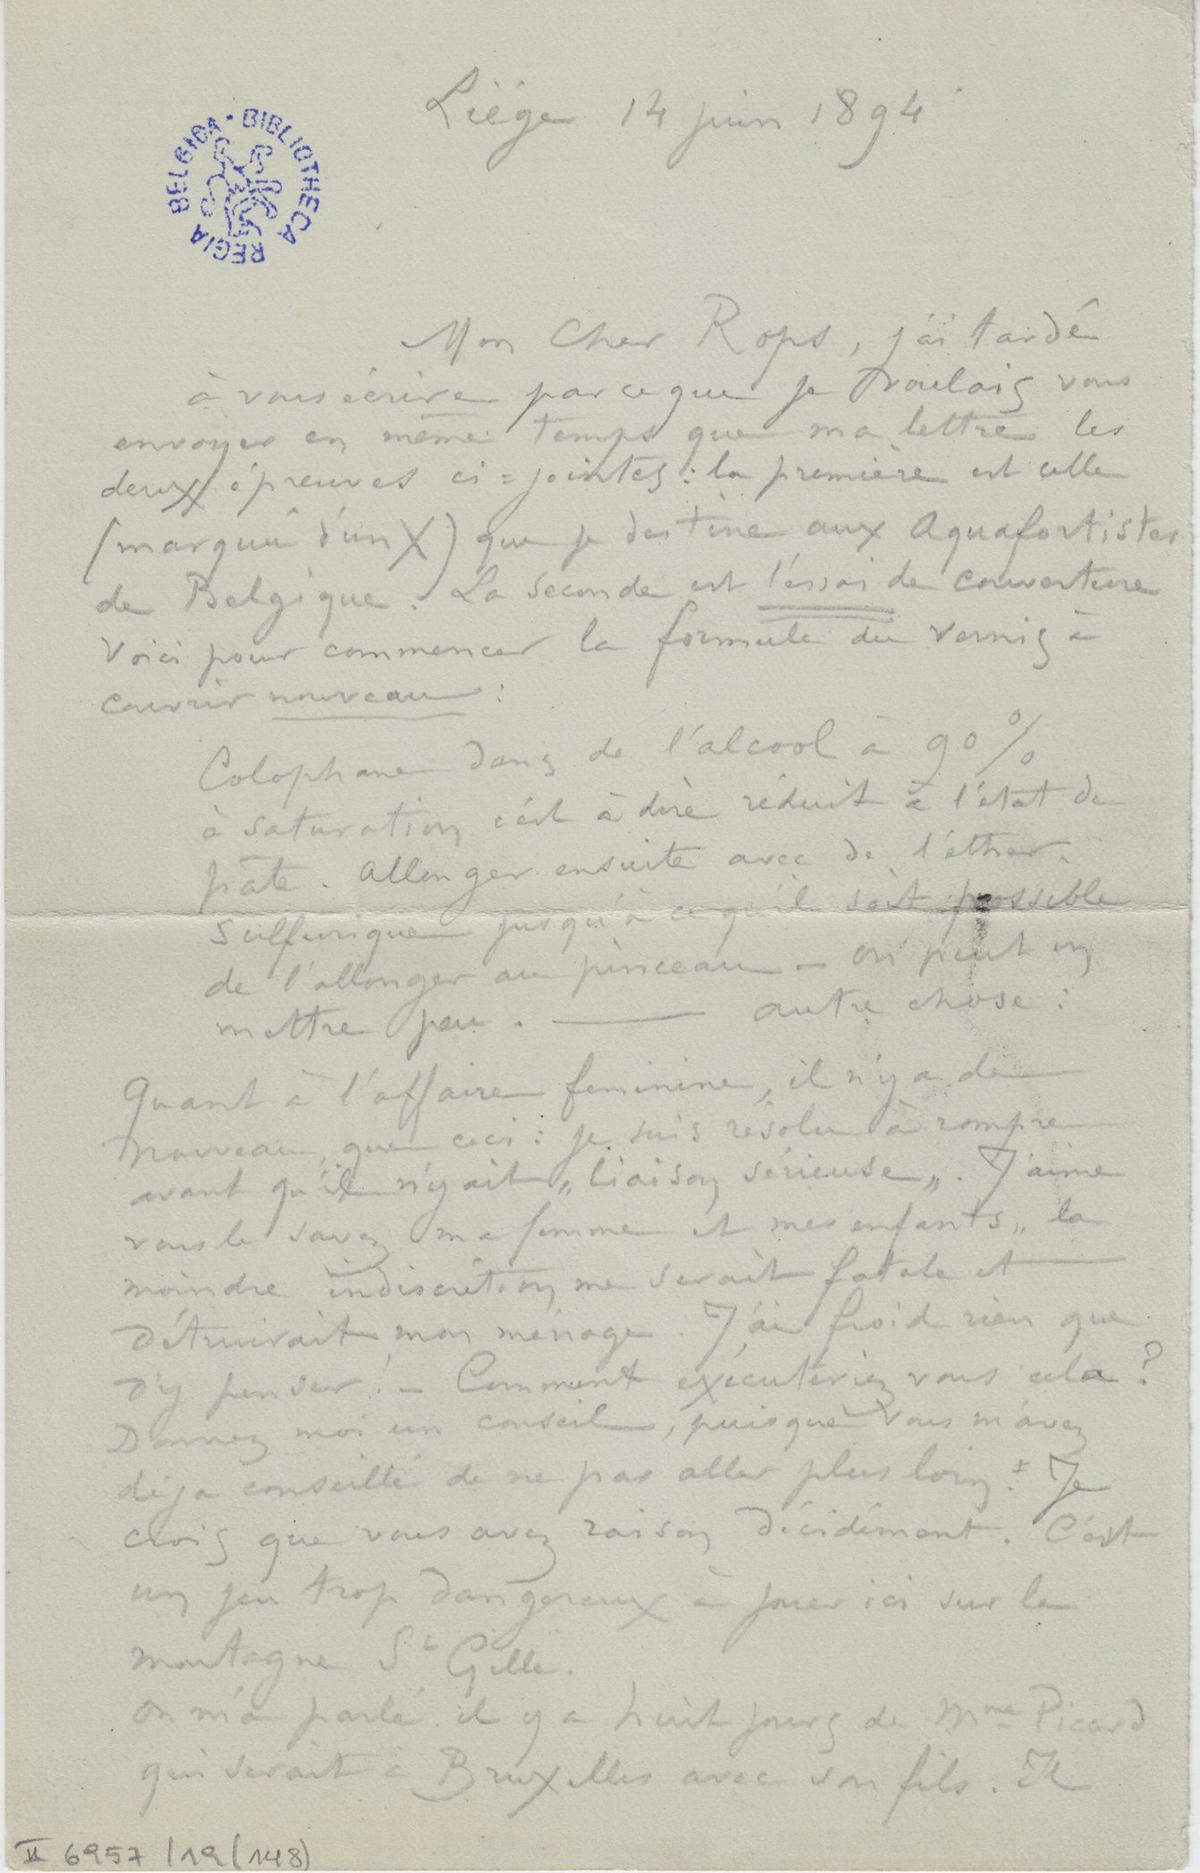 Liége 14 juin 1894
BELGICA · BIBLIOTHECA REGIA
Mon Cher Rops, j'ai tardé
à vous écrire parceque je voulais vous
envoyer en même temps que ma lettre les
deux épreuves ci=jointes : la première est celle
(marquée d'un X) que je destine aux Aquafortistes
de Belgique. La seconde est l'éssai de couverture
Voici pour commencer la formule du vernis à
couvrir nouveau :
Colophane dans de l'alcool à 90 %
à saturation c'est à dire réduit à l'état de
pâte. Allonger ensuite avec de l'éther.
sulfurique jusqu'à ce qu'il soit possible
de l'allonger au pinceau — on peut en
mettre peu. — autre chose :
Quant à l'affaire feminine, il n'y a de
nouveau, que ceci : je suis résolu à rompre
avant qu'il n'y ait „liaison sérieuse„. J'aime
vous le savez ma femme et mes enfants„ la
moindre indiscrétion me serait fatale et
détruirait mon ménage. J'ai froid rien que
d'y penser! — Comment exécuteriez vous cela ?
Donnez moi un conseil, puisque vous m'avez
déja conseillé de ne pas aller plus loin ! Je
crois que vous avez raison décidément. C'est
un jeu trop dangereux à jouer ici sur la
montagne St Gille.
On m'a parlé il y a huit jours de Mme Picard
qui serait à Bruxelles avec son fils. Il
II 6957 /19 (148)